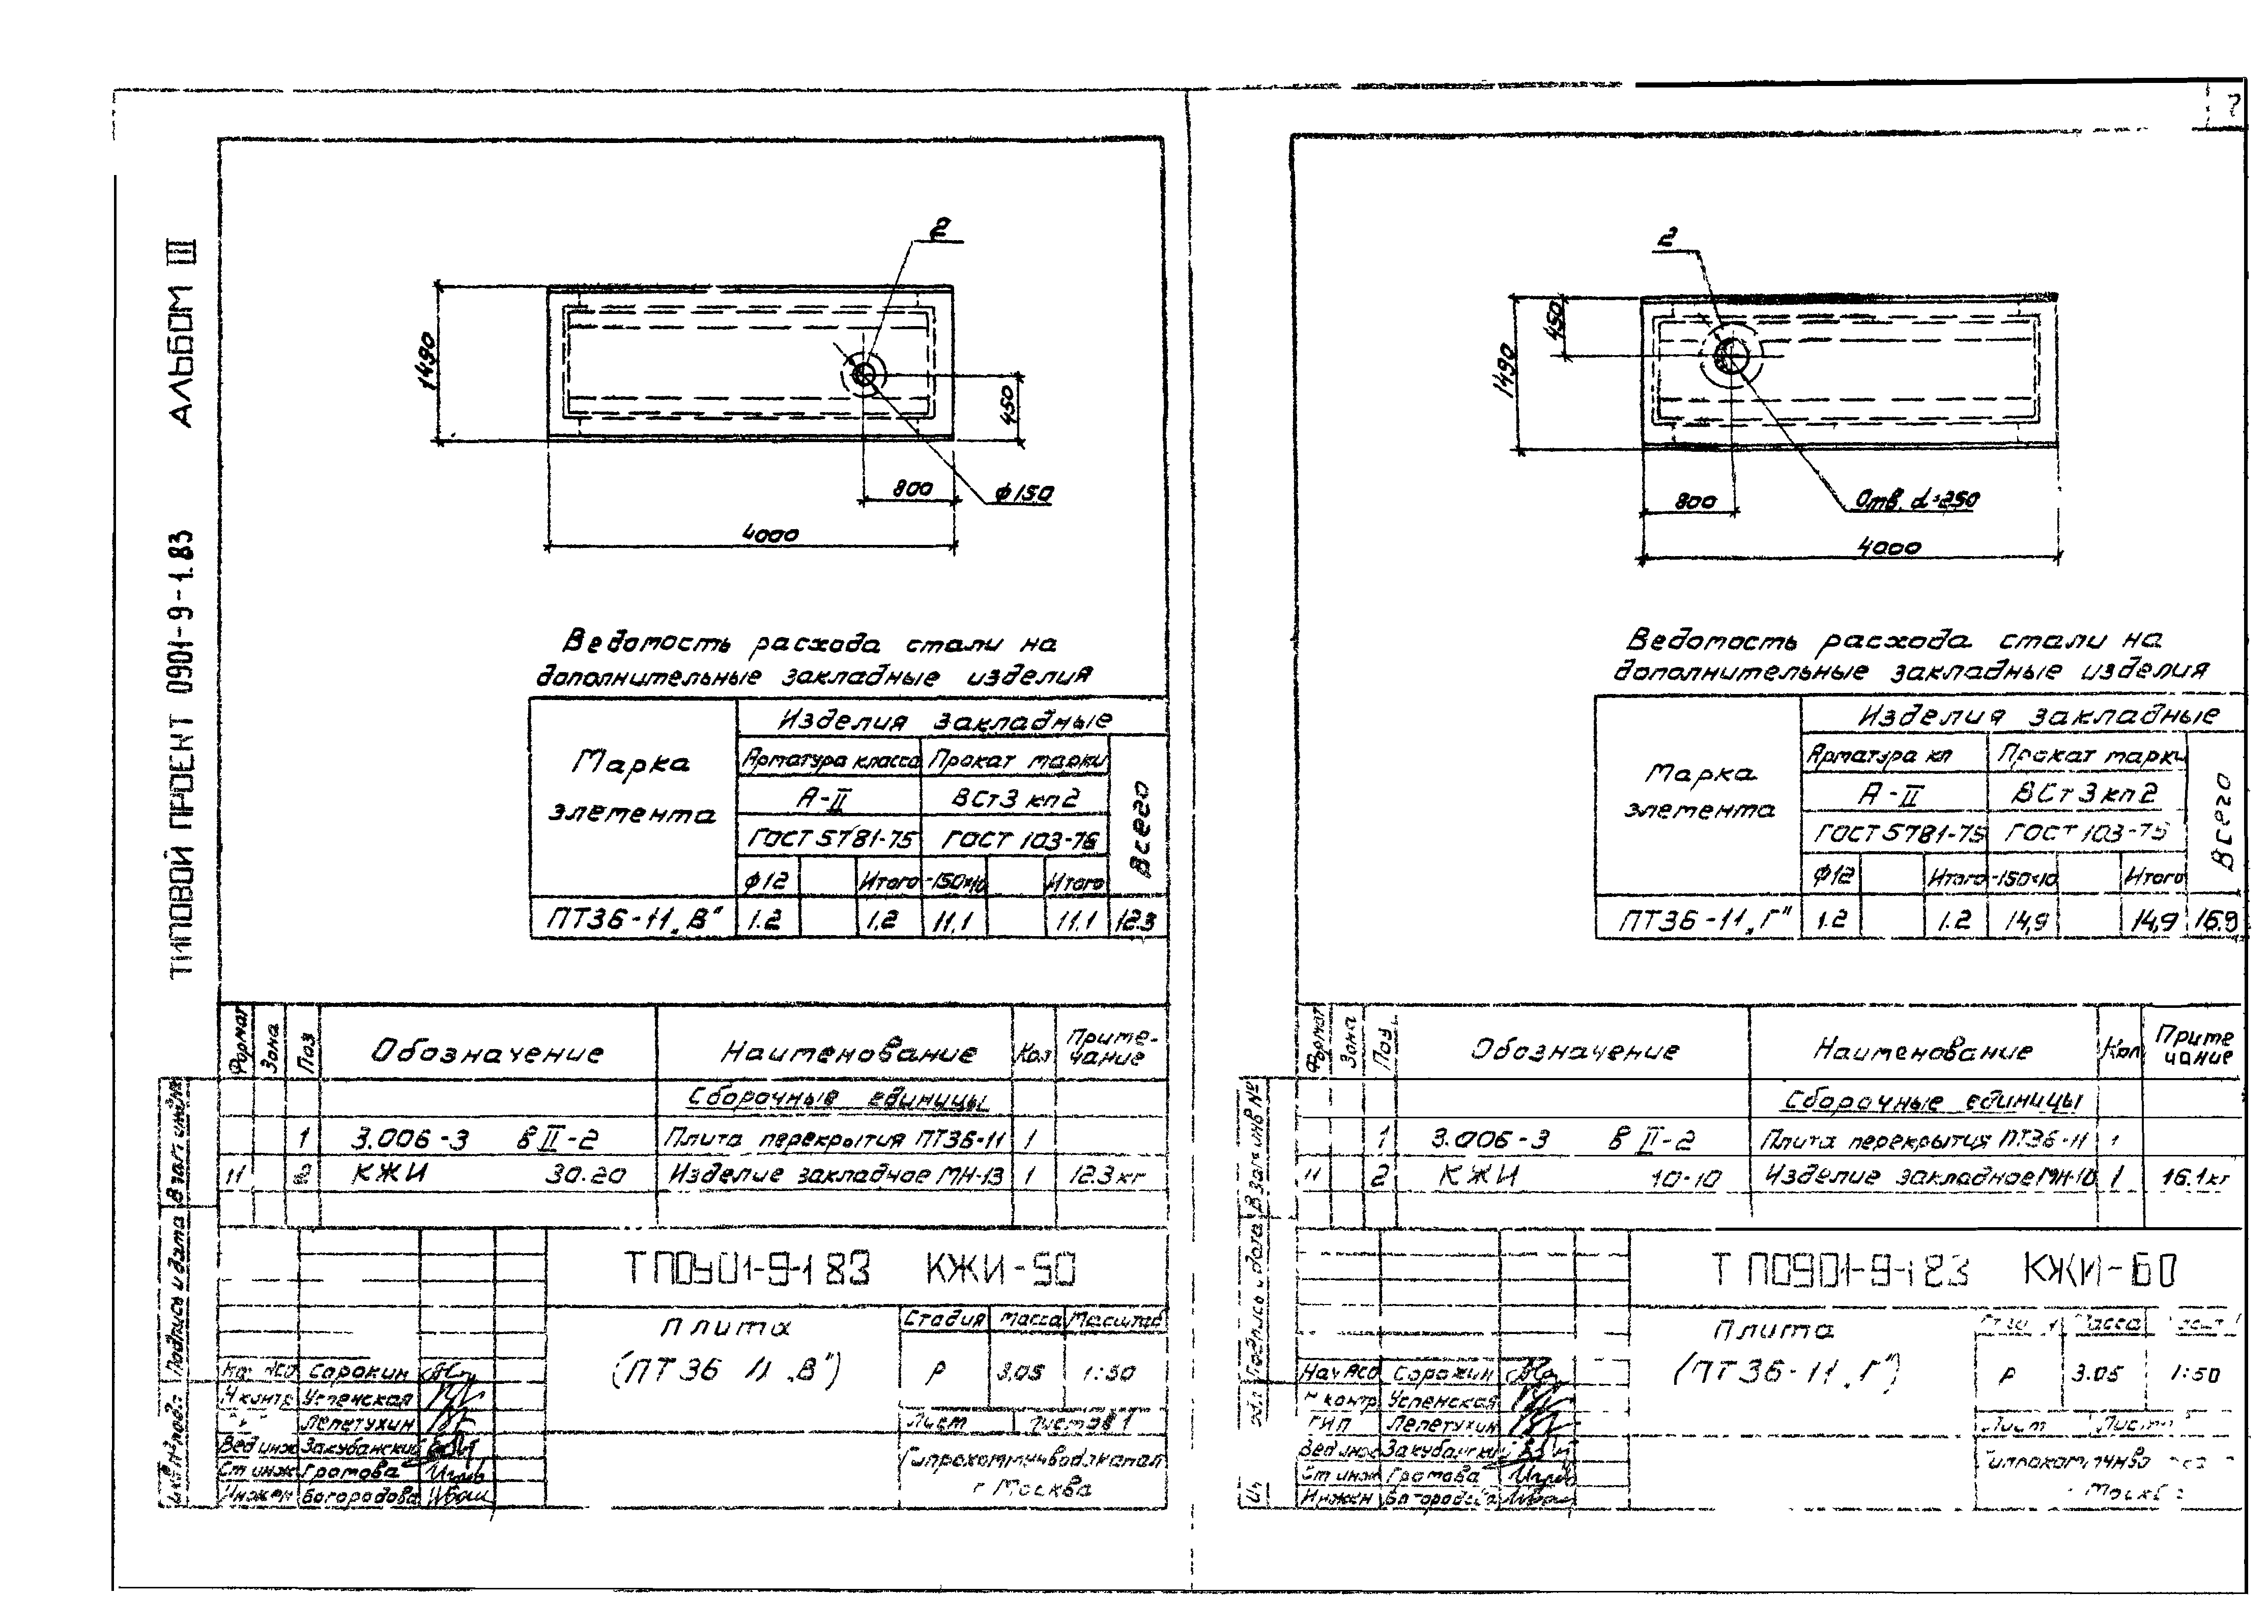 7
АЛЬБОМ III
ТИПОВОЙ ПРОЕКТ 0901-9-1.83
2
1490
450
800
ф150
4000
Ведомость расхода стали на
дополнительные закладные изделия
Марка элемента
Изделия закладные
Арматура класса
Прокат марки
Всего
А-II
ВСт3кп2
ГОСТ 5781-75
ГОСТ 103-76
ф12
Итого
-150×10
Итого
ПТ36-11„В"
1.2
1.2
11.1
11.1
12.3
Формат
Зона
Поз
Обозначение
Наименование
Кол
Приме-
чание
Сборочные единицы
1 3.006-3 в II-2 Плита перекрытия ПТ36-11 1
11 2 КЖИ 30.20 Изделие закладное МН-13 1 12.3кг
Взам. инв.№
Подпись и дата
Инв.№подл.
КЖИ-50
плита
(ПТ36 11 „В")
Стадия Масса Масштаб
Р 3.05 1:50
Лист Листов 1
Гипрокоммунводоканал
г Москва
Сорокин
Н контр Успенская
Лепетухин
Вед инж Закубанский
Ст инж Громова
Инжен Богородова
2
450
1490
800
Отв. d=250
4000
Ведомость расхода стали на
дополнительные закладные изделия
Марка
элемента
Изделия закладные
Арматура кл
Прокат марки
Всего
А-II
ВСт3кп2
ГОСТ 5781-75
ГОСТ 103-76
ф12
Итого
-150×10
Итого
ПТ36-11„Г"
1.2
1.2
14,9
14,9
16.9
Формат
Зона
Поз
Обозначение
Наименование
Кол
Приме
чание
Сборочные единицы
1 3.006-3 в II-2 Плита перекрытия ПТ36-11 1
11 2 КЖИ 10-10 Изделие закладное МН-10 1 16.1кг
Взам инв №
Подпись и дата
КЖИ-60
плита
(ПТ36-11„Г")
Масса
Р 3.05 1:50
Лист
Нач АСО Сорокин
контр Успенская
ГИП Лепетухин
Вед инж Закубанский
Ст инж Громова
Инжен Богородова